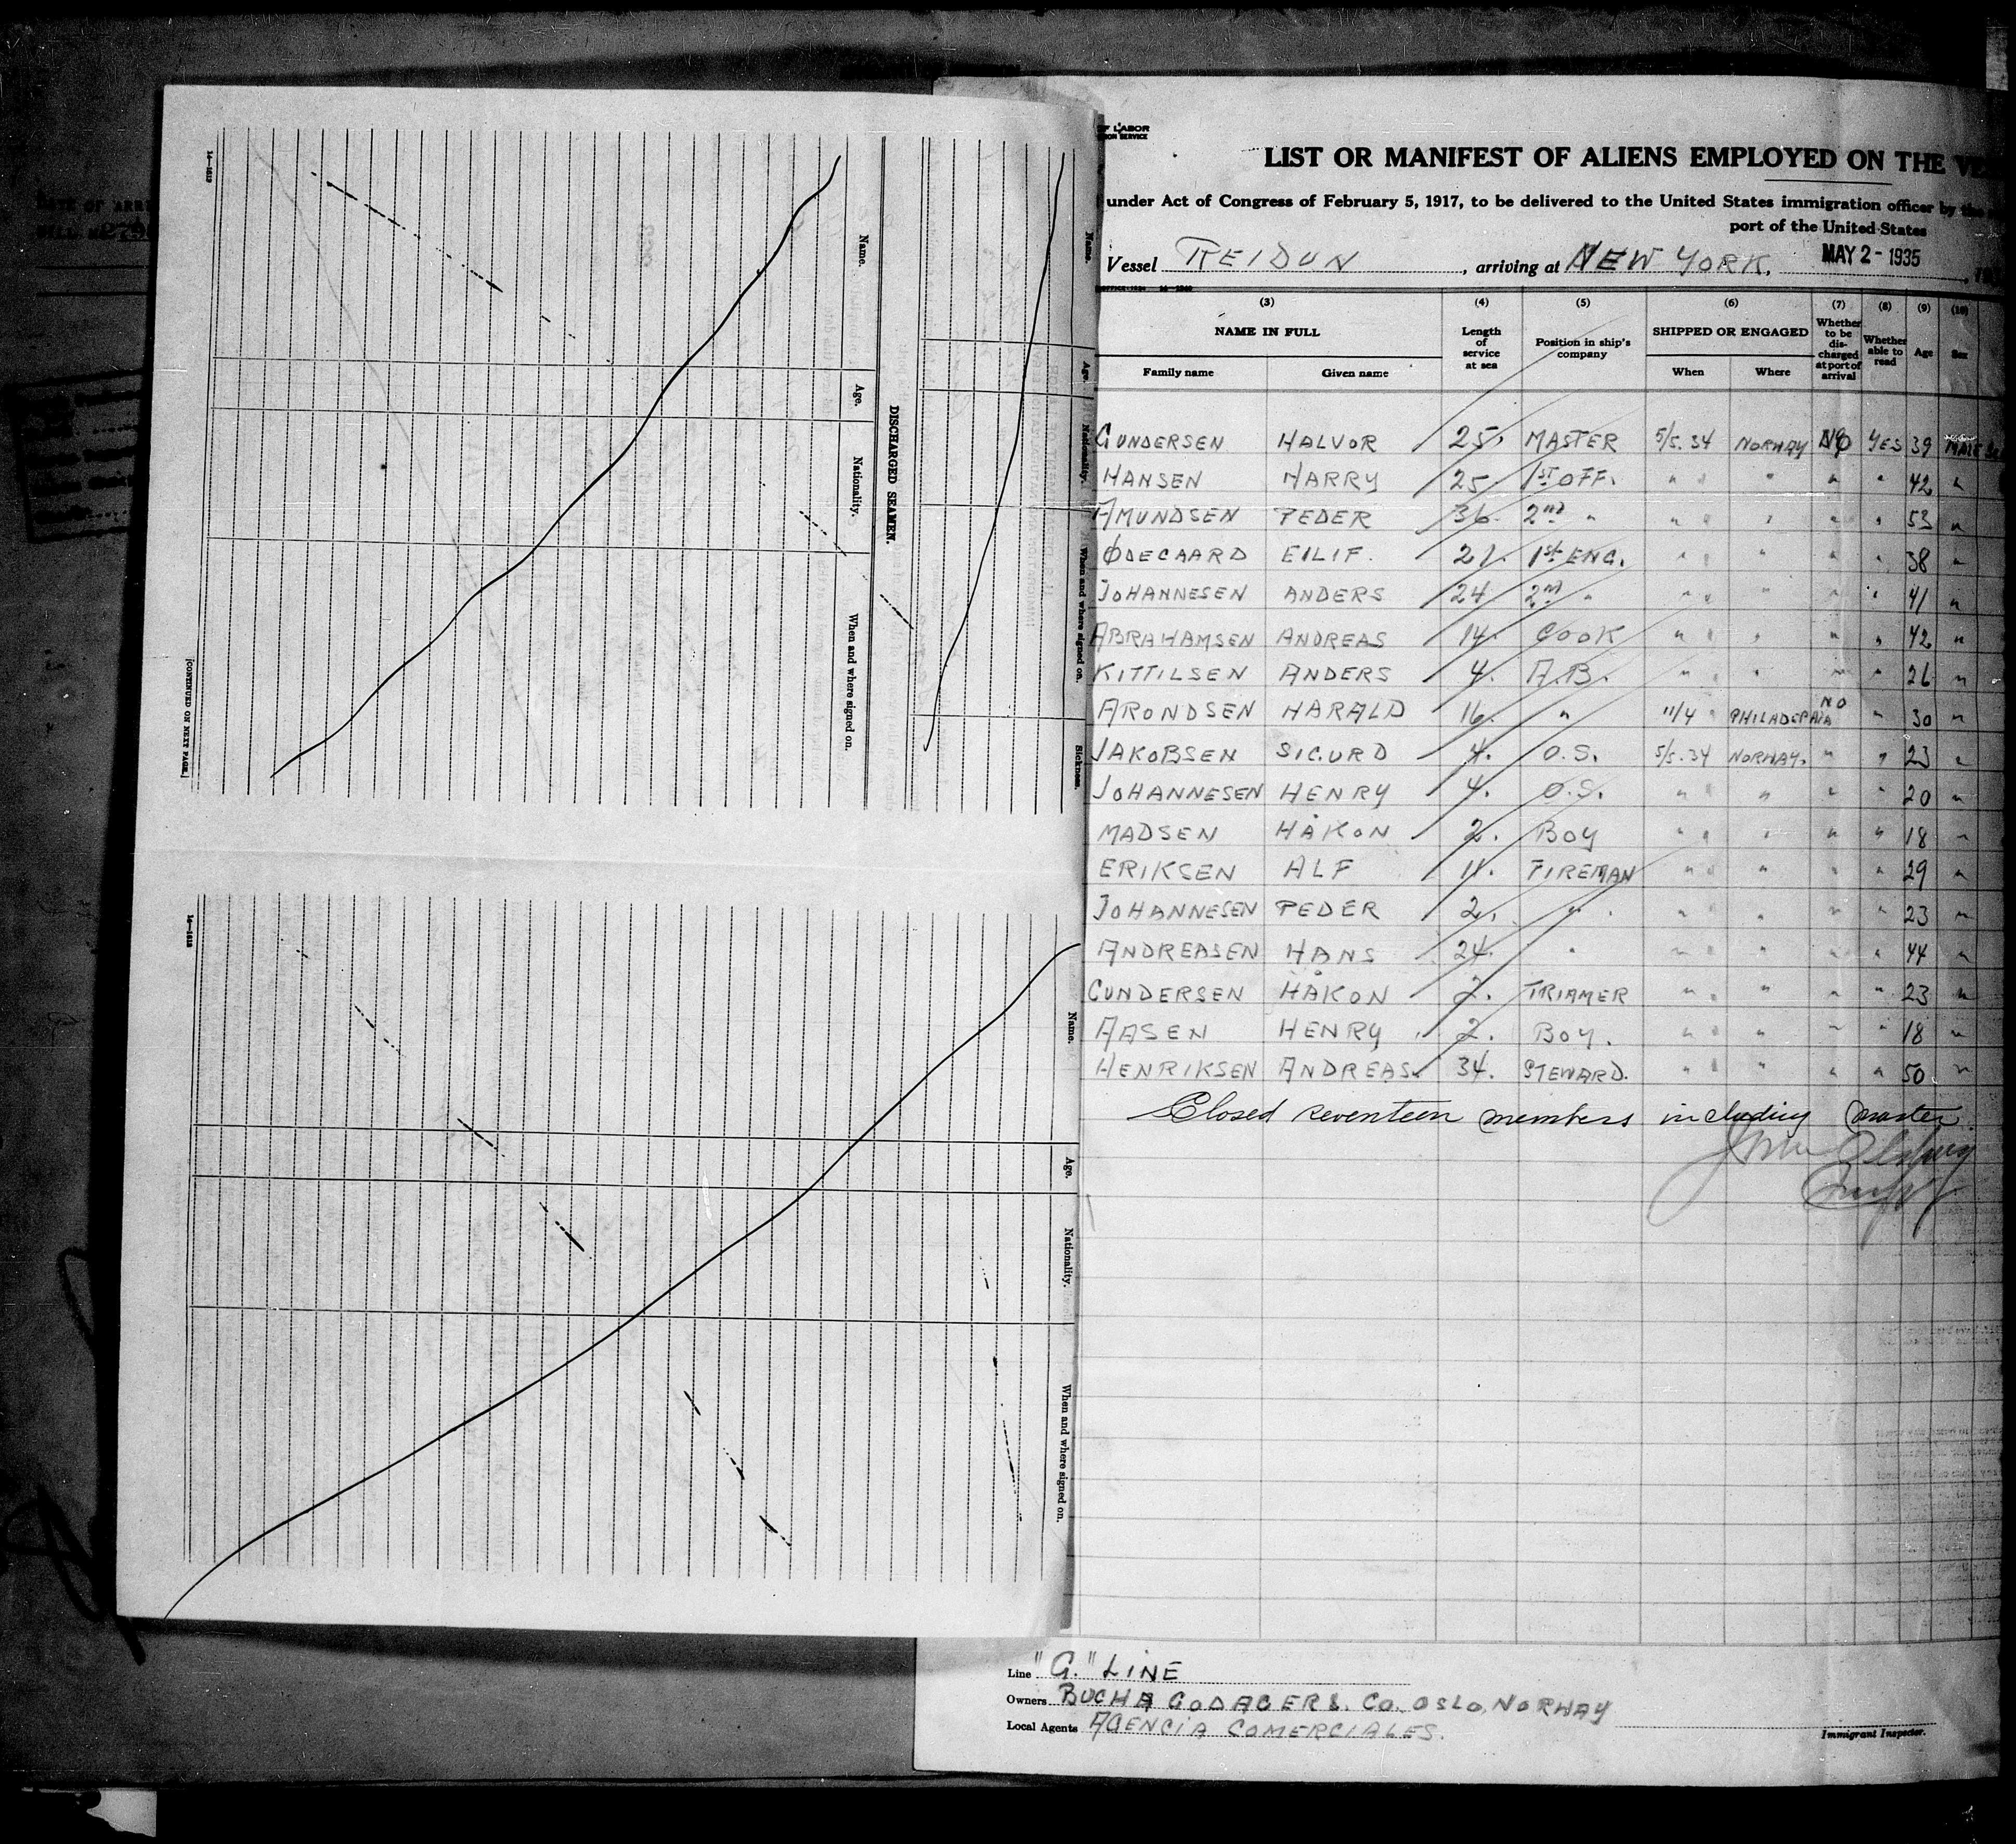 16—1613
Name.
Age.
Nationality.
When and where signed on.
[CONTINUED ON NEXT PAGE.]
DISCHARGED SEAMEN.
Name.
Age.
Nationality.
When and where signed on.
Sickness.
16—1613
Name.
Age.
Nationality.
When and where signed on.
OF LABOR
SERVICE
LIST OR MANIFEST OF ALIENS EMPLOYED ON THE
under Act of Congress of February 5, 1917, to be delivered to the United States immigration officer by the
port of the United States
Vessel REIDUN, arriving at NEW YORK, MAY 2 - 1935
(3) (4) (5) (6) (7) (8) (9) (10)
NAME IN FULL Length of service at sea Position in ship's company SHIPPED OR ENGAGED Whether to be discharged at port of arrival Whether able to read Age Sex
Family name Given name When Where
GUNDERSEN HALVOR 25. MASTER 5/5.34 NORWAY NO YES 39 MALE
HANSEN HARRY 25 1ST OFF. " " " " " 42 "
AMUNDSEN PEDER 36. 2nd " " " " " " 53 "
ØDEGAARD EILIF. 21. 1st ENG. " " " " " 38 "
JOHANNESEN ANDERS 24 2nd " " " " " " 41 "
ABRAHAMSEN ANDREAS 14. COOK " " " " " 42 "
KITTILSEN ANDERS 4. A.B. " " " " " 26 "
ARONDSEN HARALD 16. " 11/4 " PHILADEPHIA NO " 30 "
JAKOBSEN SIGURD 4. O.S. 5/5.34 NORWAY. " " 23 "
JOHANNESEN HENRY 4. O.S. " " " " " 20 "
MADSEN HÅKON 2. BOY " " " " " 18 "
ERIKSEN ALF 11. FIREMAN " " " " " 29 "
JOHANNESEN PEDER 2. " " " " " " 23 "
ANDREASEN HANS 24. " " " " " " 44 "
GUNDERSEN HÅKON 2. TRIMMER " " " " " 23 "
AASEN HENRY 2. BOY. " " " " " 18 "
HENRIKSEN ANDREAS. 34. STEWARD. " " " " " 50 "
Closed seventeen members including master.
Line "G." LINE
Owners BUCH & GODAGERS. CO. OSLO, NORWAY
Local Agents AGENCIA COMERCIALES.
Immigrant Inspector.